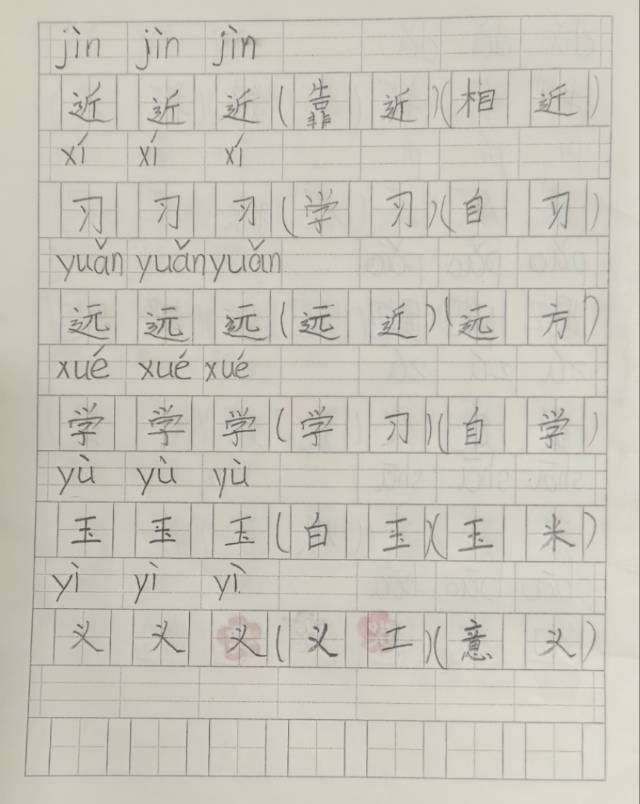 jìn jìn jìn
近 近 近 (靠 近)(相 近)
xí xí xí
习 习 习 (学 习)(自 习)
yuǎn yuǎn yuǎn
远 远 远 (远 近)(远 方)
xué xué xué
学 学 学 (学 习)(自 学)
yù yù yù
玉 玉 玉 (白 玉)(玉 米)
yì yì yì
义 义 义 (义 工)(意 义)